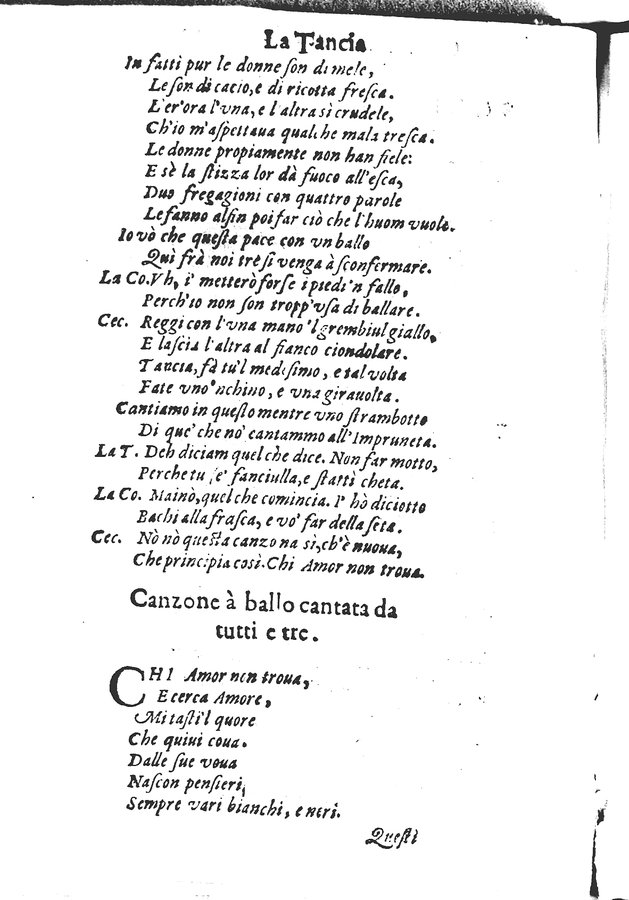 La Tancia
In fatti pur le donne son di mele,
Le son di cacio, e di ricotta fresca.
L'er'ora l'vna, e l'altra sì crudele,
Ch'io m'aspettaua qualche mala tresca.
Le donne propiamente non han fiele:
E sè la stizza lor dà fuoco all'esca,
Duo fregagioni con quattro parole
Le fanno alfin poi far ciò che l'huom vuole.
Io vò che questa pace con vn ballo
Quì frà noi trè si venga à sconfermare.
La Co. Vh, i' metterò forse i piedi 'n fallo,
Perch'io non son tropp'vsa di ballare.
Cec. Reggi con l'vna mano 'l grembiul giallo,
E lascia l'altra al fianco ciondolare.
Tancia, fà tu'l medesimo, e tal volta
Fate vno 'nchino, e vna girauolta.
Cantiamo in questo mentre vno strambotto
Di que' che no' cantammo all'Impruneta.
La T. Deh diciam quel che dice. Non far motto,
Perche tu se' fanciulla, e statti cheta.
La Co. Mainò, quel che comincia. I' hò diciotto
Bachi alla frasca, e vo' far della seta.
Cec. Nò nò questa canzona sì, ch'è nuoua,
Che principia così. Chi Amor non troua.
Canzone à ballo cantata da
tutti e tre.
CHI Amor non troua,
E cerca Amore,
Mi tasti'l quore
Che quiui coua.
Dalle sue voua
Nascon pensieri,
Sempre vari bianchi, e neri.
Questi